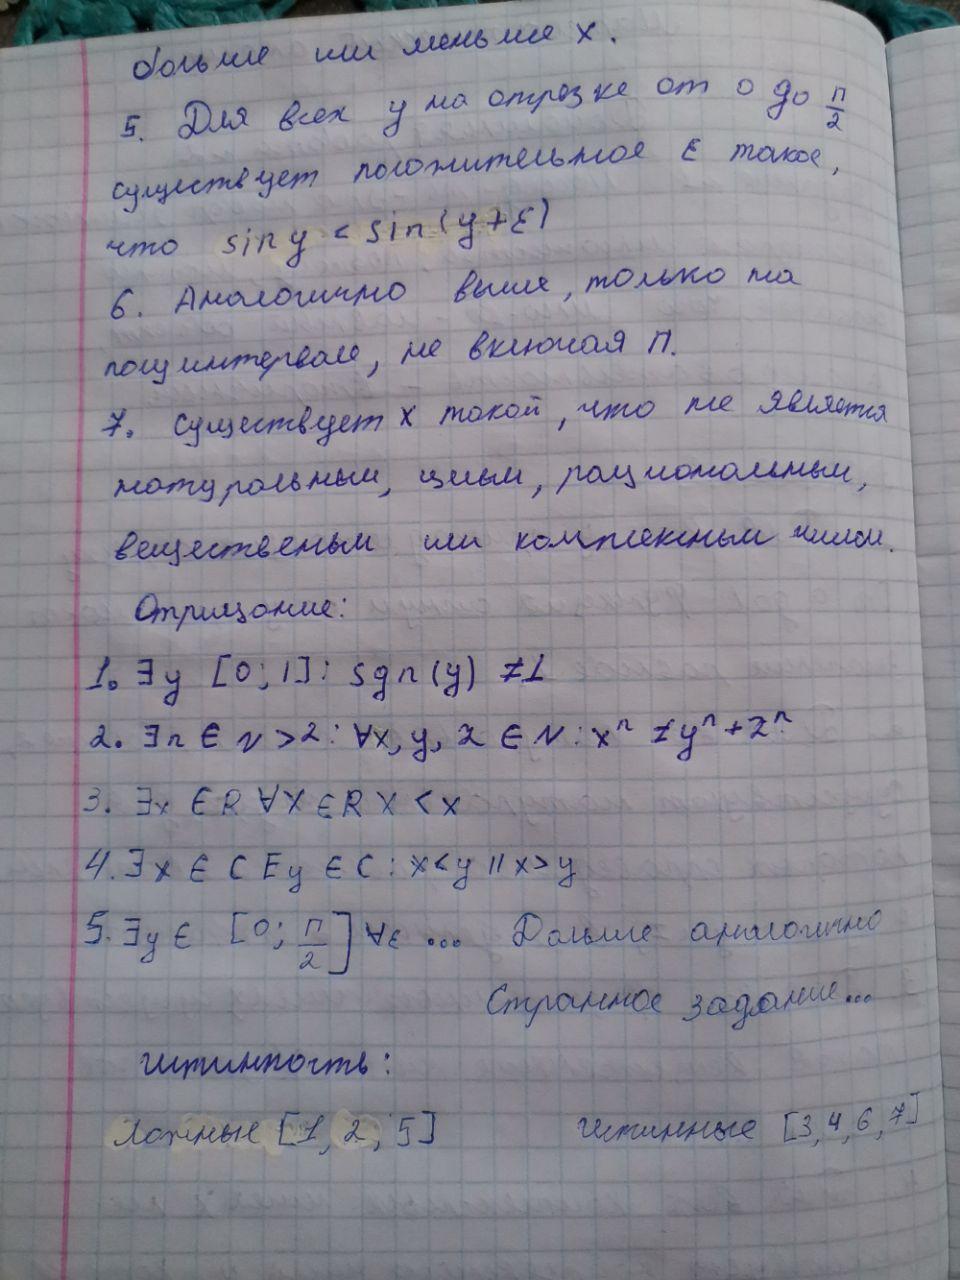 больше или меньше x.
5. Для всех y на отрезке от 0 до π/2
существует положительное ε такое,
что sin y < sin(y+ε)
6. Аналогично выше, только на
полуинтервале, не включая π.
7. Существует x такой, что не является
натуральным, целым, рациональным,
вещественным или комплексным числом.
Отрицание:
1. ∃y [0; 1]: sgn(y) ≠ 1
2. ∃n ∈ N > 2: ∀x, y, z ∈ N: xⁿ ≠ yⁿ + zⁿ
3. ∃x ∈ R ∀X ∈ R X < x
4. ∃x ∈ C E y ∈ C: x < y || x > y
5. ∃y ∈ [0; π/2] ∀ε ... Дальше аналогично
Странное задание...
Истинность:
Ложные [1, 2, 5] Истинные [3, 4, 6, 7]